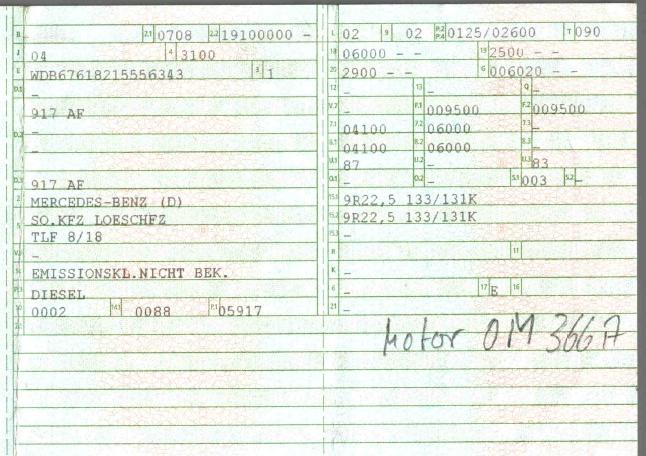 B - 2.1 0708 2.2 19100000 -
J 04 4 3100
E WDB67618215556343 3 1
D.1 -
917 AF
-
D.2 -
-
D.3 917 AF
2 MERCEDES-BENZ (D)
5 SO.KFZ LOESCHFZ
TLF 8/18
V.9 -
14 EMISSIONSKL.NICHT BEK.
P.3 DIESEL
10 0002 14.1 0088 P.1 05917
22
L 02 9 02 P.2 P.4 0125/02600 T 090
18 06000 - - 19 2500 - -
20 2900 - - G 006020 - -
12 - 13 - Q -
V.7 - F.1 009500 F.2 009500
7.1 04100 7.2 06000 7.3 -
8.1 04100 8.2 06000 8.3 -
U.1 87 U.2 - U.3 83
O.1 - O.2 - S.1 003 S.2 -
15.1 9R22,5 133/131K
15.2 9R22,5 133/131K
15.3 -
R - 11
K -
6 - 17 E 16
21 -
Motor OM 366A